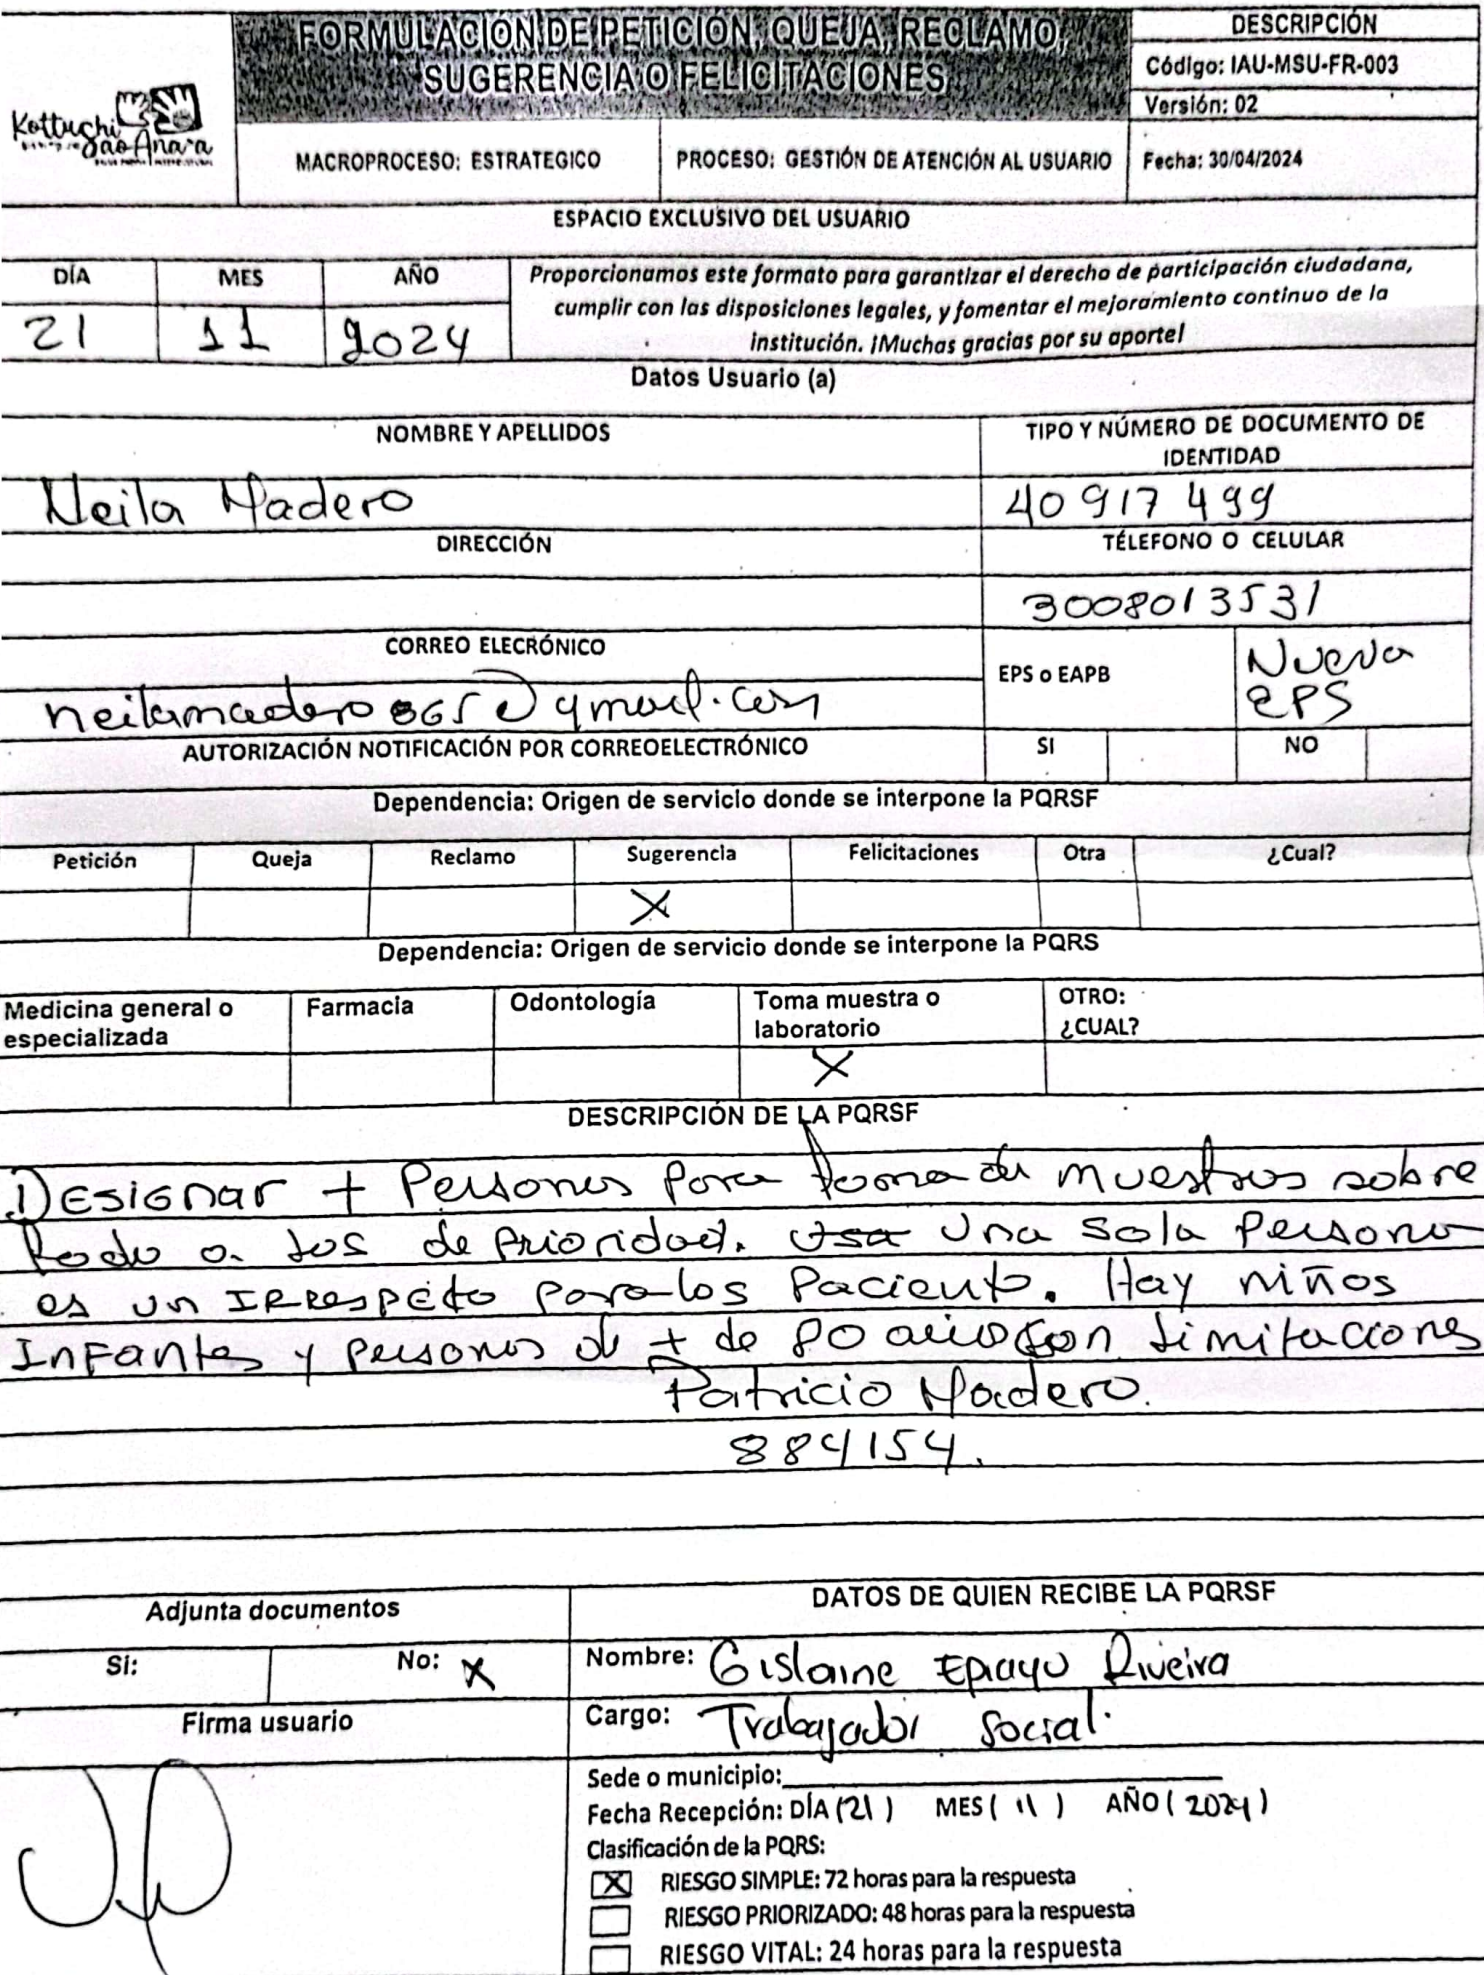 FORMULACIÓN DE PETICIÓN, QUEJA, RECLAMO,
SUGERENCIA O FELICITACIONES
DESCRIPCIÓN
Código: IAU-MSU-FR-003
Versión: 02
Kottushi
Sao Anaꞌa
MACROPROCESO: ESTRATEGICO
PROCESO: GESTIÓN DE ATENCIÓN AL USUARIO
Fecha: 30/04/2024
ESPACIO EXCLUSIVO DEL USUARIO
DÍA MES AÑO
21 11 2024
Proporcionamos este formato para garantizar el derecho de participación ciudadana,
cumplir con las disposiciones legales, y fomentar el mejoramiento continuo de la
institución. ¡Muchas gracias por su aporte!
Datos Usuario (a)
NOMBRE Y APELLIDOS
TIPO Y NÚMERO DE DOCUMENTO DE
IDENTIDAD
Neila Madero
40 917 499
DIRECCIÓN
TÉLEFONO O CELULAR
3008013531
CORREO ELECRÓNICO
EPS o EAPB
Nueva
EPS
neilamadero865@gmail.com
AUTORIZACIÓN NOTIFICACIÓN POR CORREOELECTRÓNICO SI NO
Dependencia: Origen de servicio donde se interpone la PQRSF
Petición Queja Reclamo Sugerencia Felicitaciones Otra ¿Cual?
X
Dependencia: Origen de servicio donde se interpone la PQRS
Medicina general o
especializada
Farmacia
Odontología
Toma muestra o
laboratorio
OTRO:
¿CUAL?
X
DESCRIPCIÓN DE LA PQRSF
Designar + Personas para toma de muestras sobre
todo a los de prioridad. Una sola persona
es un IRRespeto para los Paciente. Hay niños
Infantes y personas de + de 80 años con limitaciones
Patricio Madero.
884154.
Adjunta documentos
DATOS DE QUIEN RECIBE LA PQRSF
Si: No: X
Nombre: Gislaine Epiayu Riveira
Firma usuario
Cargo: Trabajador Social.
Sede o municipio:
Fecha Recepción: DÍA (21) MES (11) AÑO (2024)
Clasificación de la PQRS:
X RIESGO SIMPLE: 72 horas para la respuesta
RIESGO PRIORIZADO: 48 horas para la respuesta
RIESGO VITAL: 24 horas para la respuesta